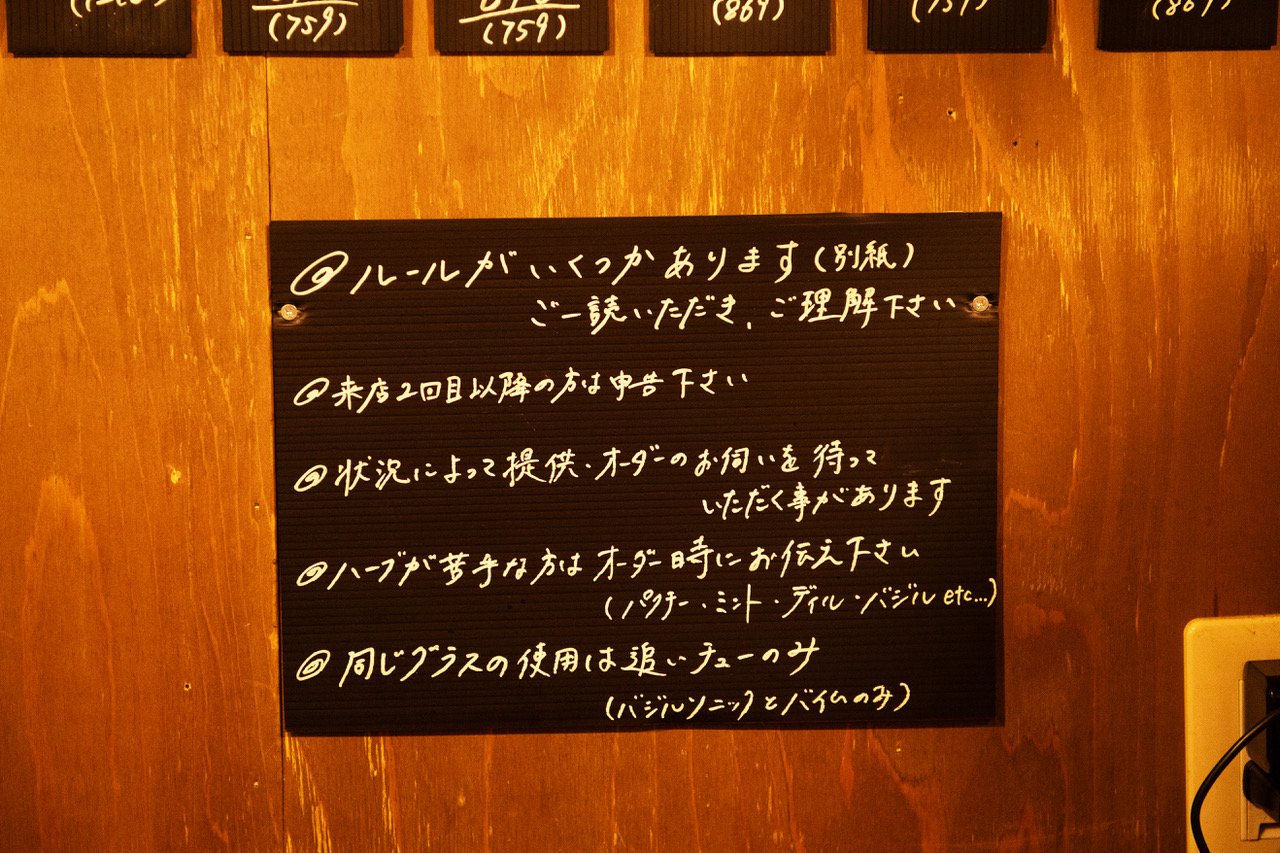 (759)
(759)
(869)
(759)
(869)
◎ルールがいくつかあります(別紙)
ご一読いただき、ご理解下さい
◎来店2回目以降の方は申告下さい
◎状況によって提供・オーダーのお伺いを待って
いただく事があります
◎ハーブが苦手な方はオーダー時にお伝え下さい
(パクチー・ミント・ディル・バジルetc...)
◎同じグラスの使用は追いチューのみ
(バジルソニックとバイムのみ)